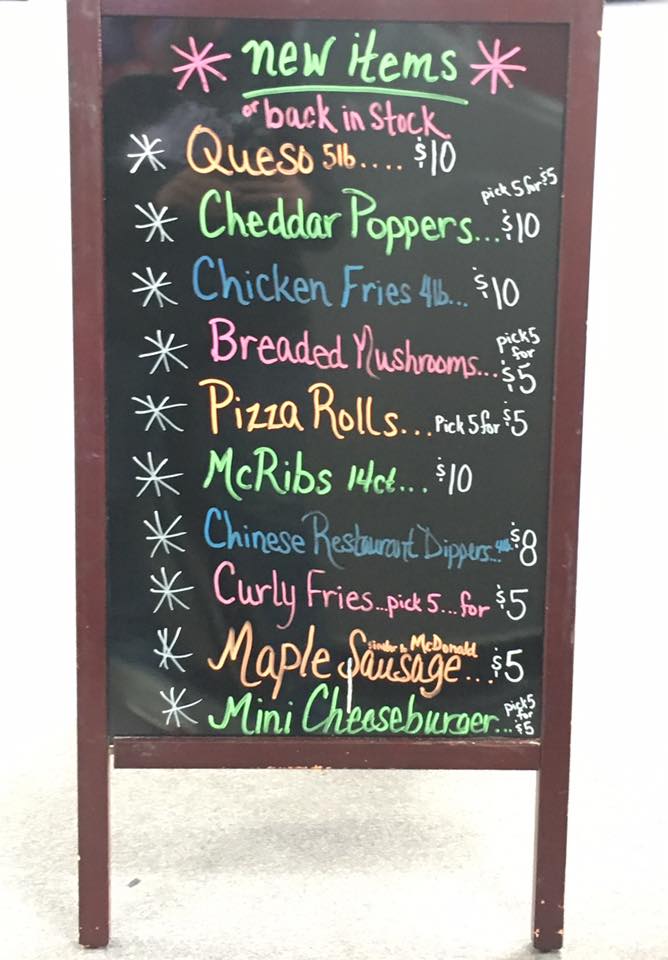 new items
or back in stock
Queso 5lb.... $10
pick 5 for $5
Cheddar Poppers... $10
Chicken Fries 4lb... $10
Breaded Mushrooms... pick 5 for $5
Pizza Rolls... Pick 5 for $5
McRibs 14ct... $10
Chinese Restaurant Dippers... 4lb. $8
Curly Fries... pick 5... for $5
similar to McDonald
Maple Sausage... $5
Mini Cheeseburger... pick 5 for $5